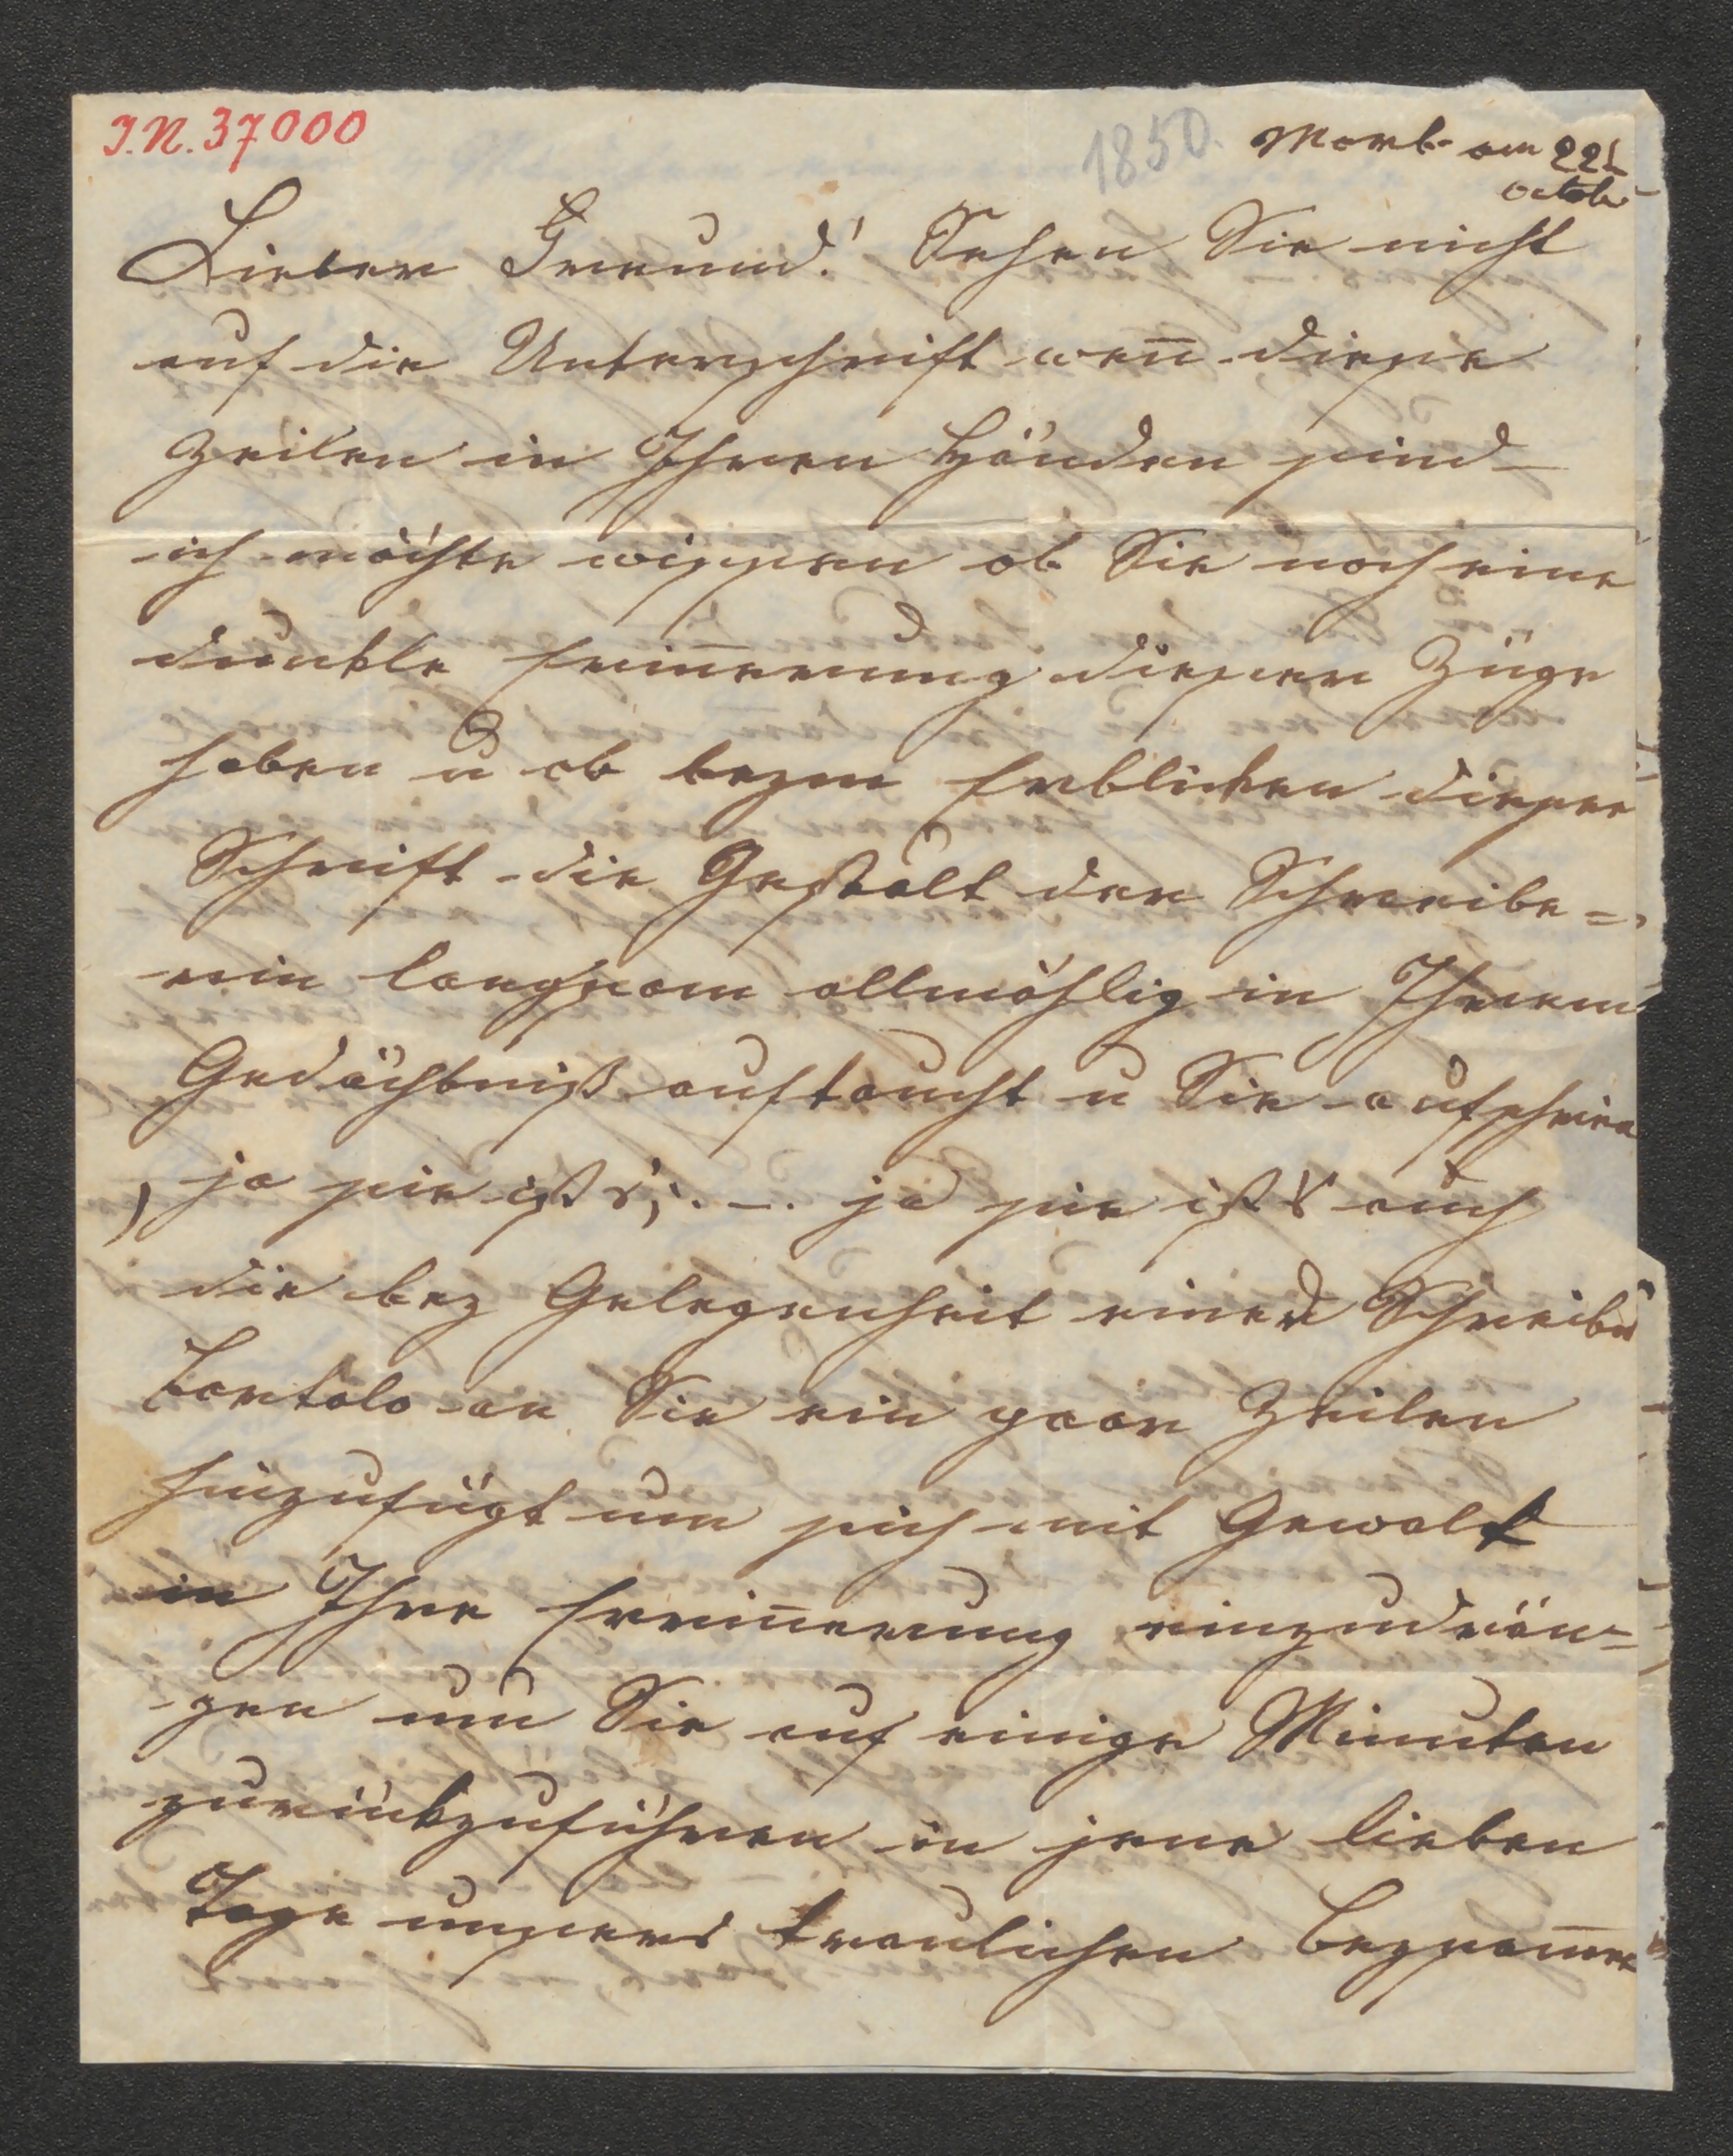 J.N. 37000
1850. Marb. am 22t
octob.
Lieber Freund! Sehen Sie nicht
auf die Unterschrift weñ diese
Zeilen in Ihren Händen sind
ich möchte wissen ob Sie noch eine
dunkle Erin̄erung dieser Züge
haben u ob beym Erblicken dieser
Schrift die Gestalt der Schreibe=
rin langsam allmählig in Ihrem
Gedächtniß auftaucht u Sie aufschrein
, ja sie ist's, . – . ja sie ist's auch
die bey Gelegenheit eines Schreibens
Bartolo an Sie ein paar Zeilen
hinzufügt um sich mit Gewalt
in Ihre Errin̄erung einzudrän=
gen um Sie auf einige Minuten
zurükzuführen in jene lieben
Tage unseres traulichen Beysam̄en